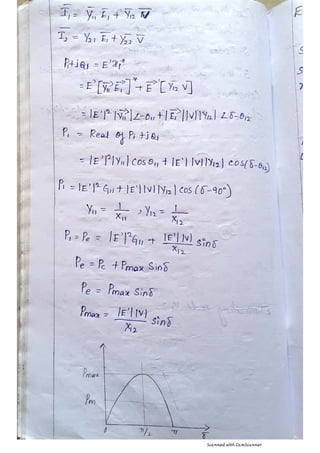 I̅₁ = Y₁₁ E₁ + Y₁₂ V
I̅₂ = Y₂₁ E₁ + Y₂₂ V
P₁+jQ₁ = E' I₁*
= E' [Y₁₁ E₁]* + E' [Y₁₂ V]
= |E'|² |Y₁₁| ∠-θ₁₁ + |E₁| |V| |Y₁₂| ∠δ-θ₁₂
P₁ = Real of P₁+jQ₁
= |E'|² |Y₁₁| cosθ₁₁ + |E'| |V| |Y₁₂| cos(δ-θ₁₂)
P₁ = |E'|² G₁₁ + |E'| |V| |Y₁₂| cos (δ-90°)
Y₁₁ = 1/X₁₁ , Y₁₂ = 1/X₁₂
P₁ = Pe = |E'|² G₁₁ + |E'| |V| / X₁₂ sinδ
Pe = Pc + Pmax Sinδ
Pe = Pmax Sinδ
Pmax = |E'| |V| / X₁₂ sinδ
Pmax
Pm
0 π/2 π δ
Scanned with CamScanner